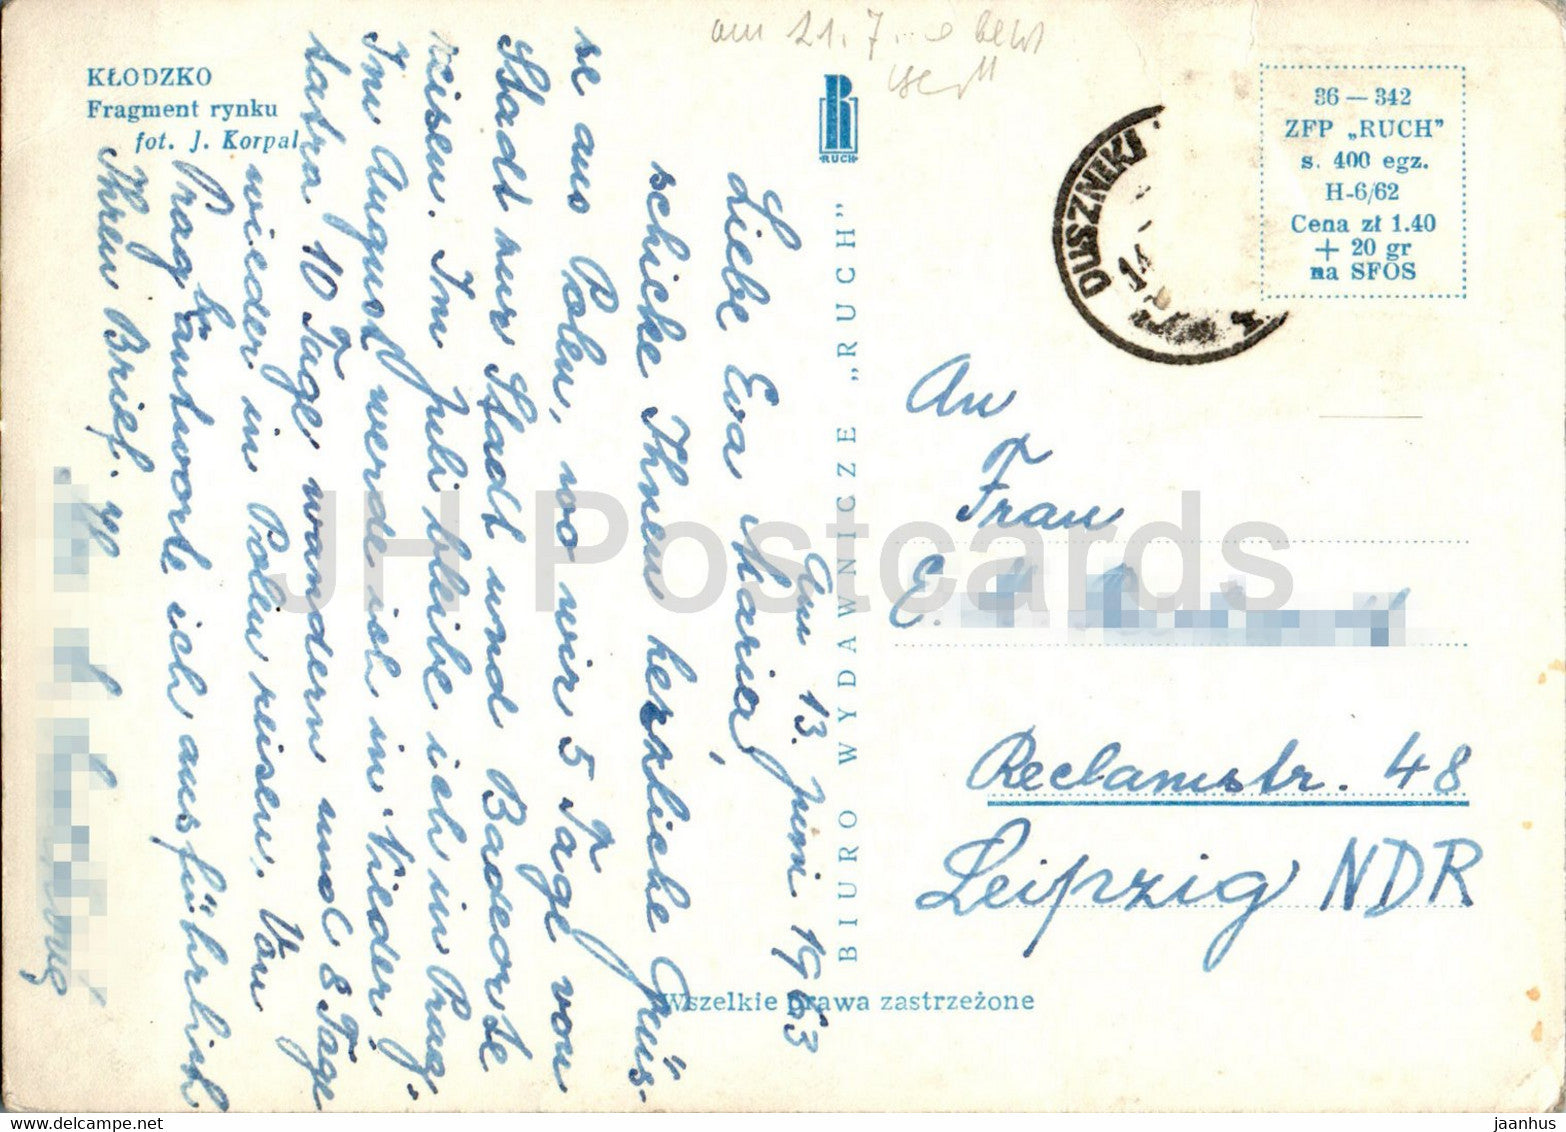 KŁODZKO
Fragment rynku
fot. J. Korpal
am 21. 7.
RUCH
BIURO WYDAWNICZE „RUCH”
Wszelkie prawa zastrzeżone
36 — 342
ZFP „RUCH”
s. 400 egz.
H-6/62
Cena zł 1.40
+ 20 gr
na SFOS
DUSZNIKI
14
Am 13. Juni 1963
Liebe Eva Maria,
schicke Ihnen herzliche Grüs-
se aus Polen, wo wir 5 Tage von
Stadt zur Stadt und Badeorte
reisen. Im Juli bleibe ich in Prag,
Im August werde ich in Nieder.
tatra 10 Tage wandern und 8 Tage
wieder in Polen reisen. Von
Prag beantworte ich ausführlich
Ihren Brief.
An
Frau
E.
Reclamstr. 48
Leipzig NDR
JH Postcards
www.delcampe.net
jaanhus